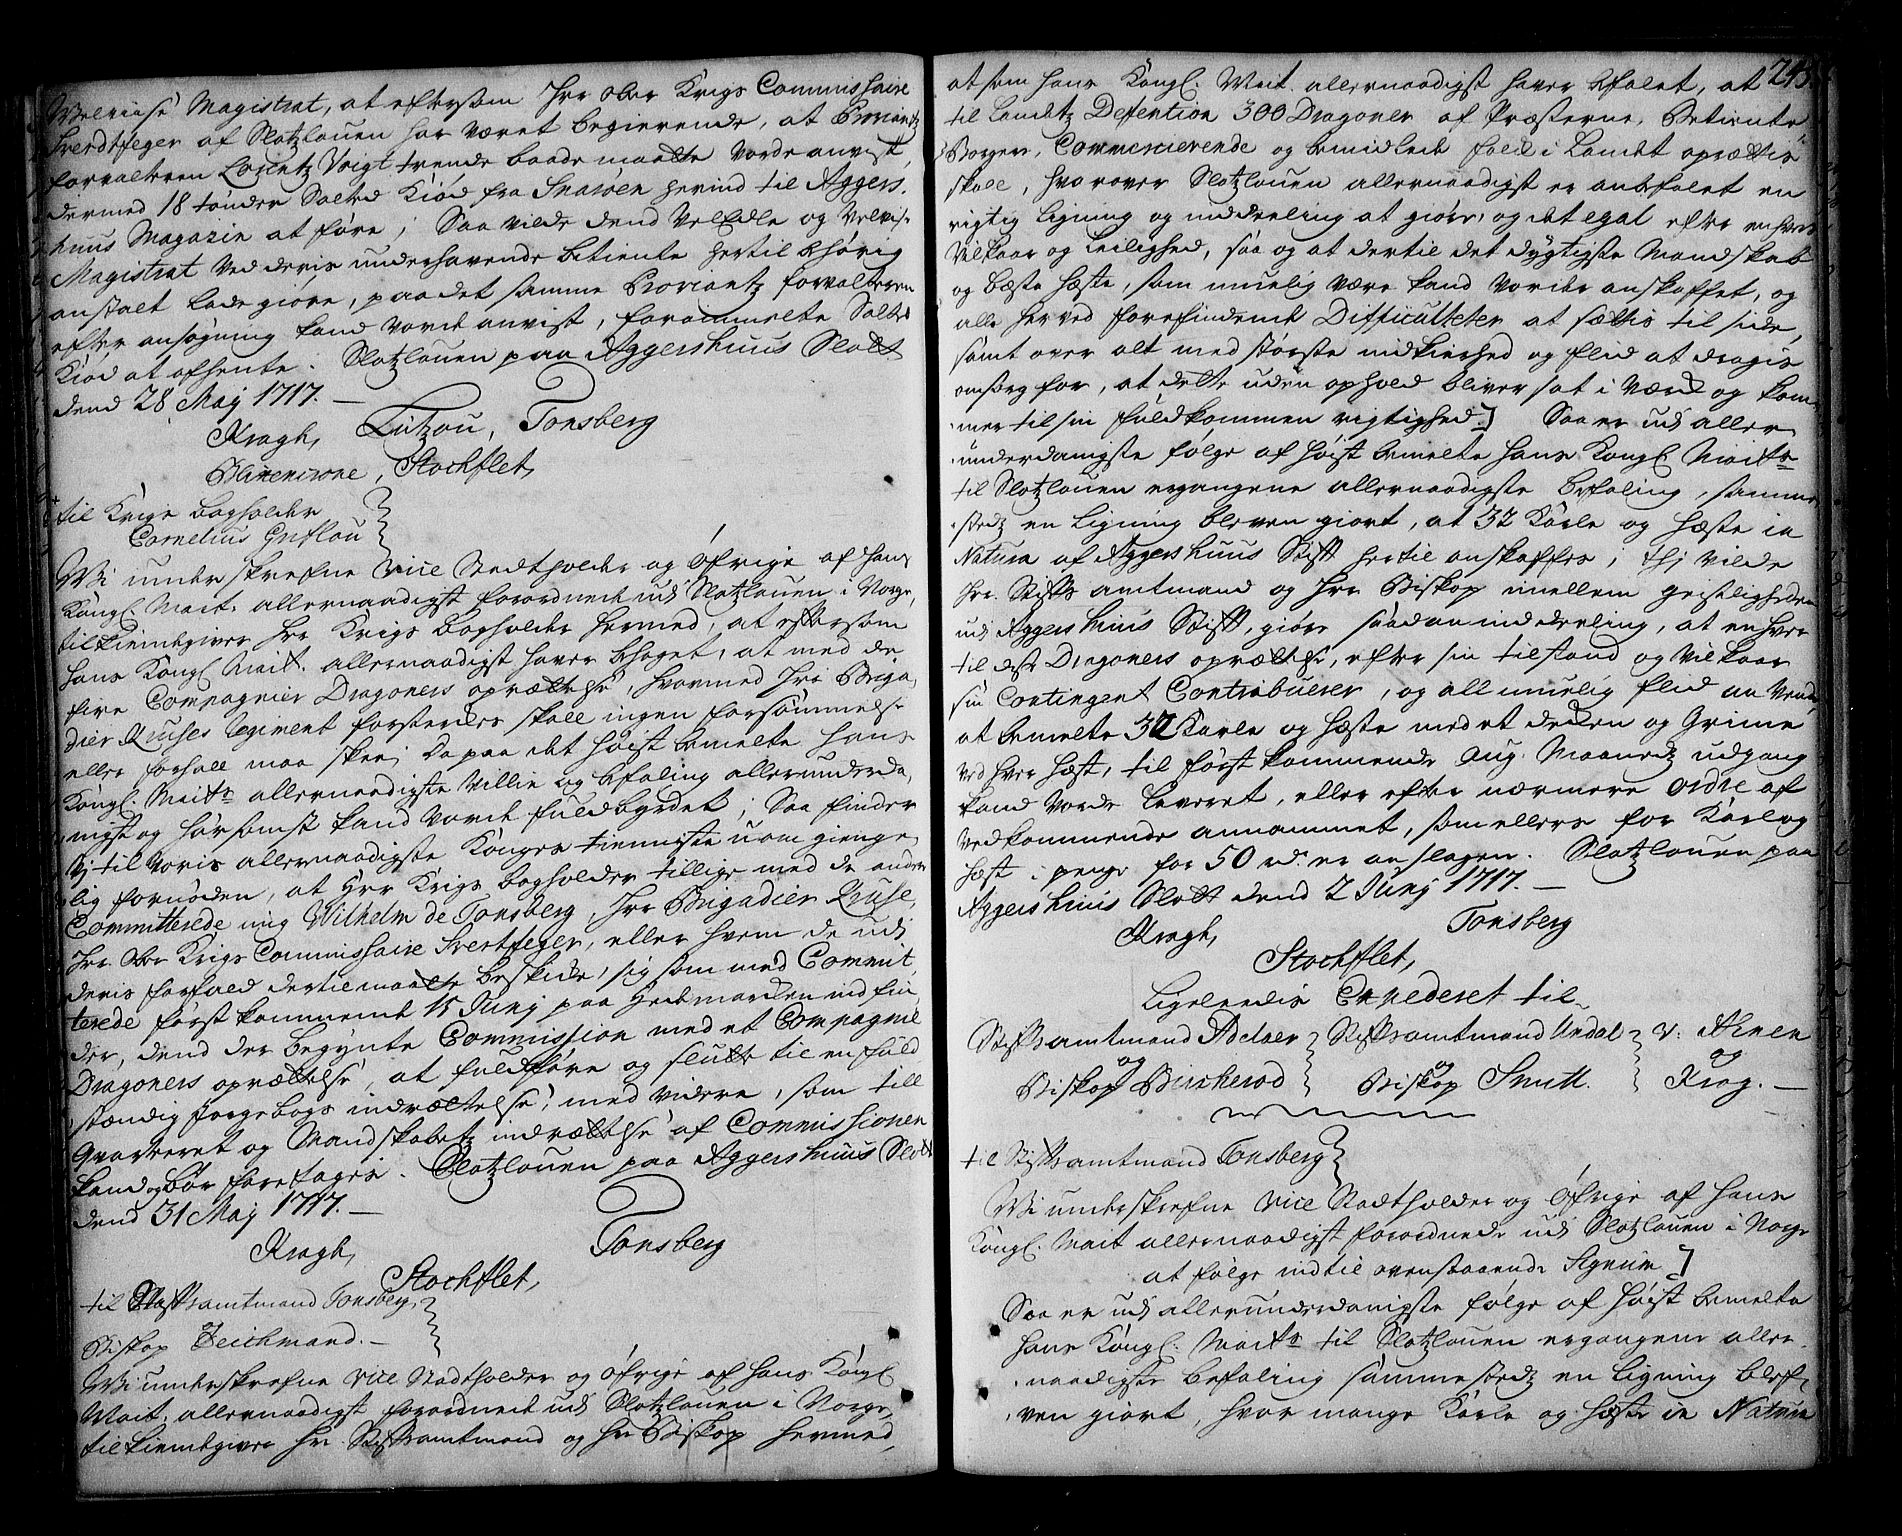 Velviise Magistrat, at eftersom Hrr ober Krigs Commissaire
Sverdtfeger af Slotzlouen har været begierende, at Proviantz
forvalteren Lorentz Voigt trende baade maatte vorde anvist,
dermed 18 tønder Saltet Kiød fra Snarøen herind til Aggers-
huus Magazin at føre; Saa vilde dend VelEdle og Velvise
Magistrat ved deris underhavende betiente hertil behørig
anstalt lade giøre, paa det samme Proviantz forvalteren
efter ansøgning kand vorde anvist, forommelte Saltet
Kiød at afhente. Slotzlouen paa Aggershuus Slott
dend 28 Maj 1717.
Kragh, Lützou, Tonsberg
Blixencrone, Stochflet,
til Krigs bogholder
Cornelius Gutlou
Wi underskrefne Vice Stadtholder og Øfrige af Hans
Kongl. Mait. allernaadigst forordnede udi Slotzlouen i Norge,
tilkiendegiver Hrr Krigs bogholder hermed, at eftersom
Hans Kongl. Mait. allernaadigst haver behaget, at med de
fire Compagnier Dragoners oprættelse, hvormed Hrr Briga-
dier Kruses Regiment forsterckes skall ingen forsømmelse
eller forhall maa skee; Da paa det høist bemelte Hans
Kongl. Maits allernaadigste Villie og befaling allerunderda-
nigst og hørsomst kand vorde fuldbyrdet; Saa finder
vj til voris allernaadigste Konges tienniste uomgienge-
lig fornøden, at Hrr Krigs bogholder tillige med de andre
Committerede mig Wilhelm de Tonsberg, Hrr Brigadier Kruse,
Hrr. Ober Krigs Commissaire Svertfeger, eller hvem de udi
deris forfald dertil maatte beskicke, sig som med Commit-
terede førstkommende 15 Junj paa Hedemarcken indfin-
der, dend der begynte Commission med et Compagnie
Dragoners oprættelse, at fuldføre og slutte til en fuld-
stændig Jorgebogs indrættelse, med videre, som till
Qvarteret og Mandskabetz indrættelse af Commissionen
kand og bør foretages. Slotzlouen paa Aggershuus Slott
dend 31 Maj 1717.
Kragh, Tonsberg
Stochflet,
til Stiftsamtmand Tonsberg,
Biskop Deichmand.
Wi underskrefne Vice Stadtholder og Øfrige af Hans Kongl.
Mait. allernaadigst forordnede udi Slotzlouen i Norge,
tilkiendegiver Hr. Stiftsamtmand og Hr Biskop hermed,
243.
at som Hans Kongl. Mait. allernaadigst haver befalet, at
til Landetz Defention 300 Dragoner af Præsterne, Betiente
Borgere, Commercierende og bemidlede folck i Landet oprættis
skall, hvorover Slotzlouen allernaadigst er anbefalet en
rigtig Ligning og inddeeling at giøre, og det egal efter enhvers
Vilkaar og Leilighed, saa og at dertil det dygtigste Mandskab
og beste Heste, som muelig være kand vorder anskaffet, og
alle herved forefindende Difficulteter at sættis til side,
samt over alt med største nidkierhed og flid at dragis
omsorg for, at dette uden ophold bliver sat i værck og kom-
mer til sin fuldkommen rigtighed] Saa er udi aller-
underdanigste følge af høist bemelte Hans Kongl. Maits
til Slotzlouen ergangene allernaadigste befaling, samme-
stedz en Ligning bleven giort, at 32 Karle og Heste in
Natura af Aggershuus Stift hertil anskaffes; thj vilde
Hr. Stifts amtmand og Hrr Biskop imellem geistligheden
udi Aggershuus Stift, giøre saadan inddeeling, at enhver
til disse Dragoners oprættelse, efter sin tilstand og vilkaar
sin Contingent Contribuerer, og all muelig flid anvende,
at bemelte 32 Karle og Heste med et decken og Grime
ved hver Hest, til først kommende Aug. Maanetz udgang
kand vorde Leveret, eller efter nærmere Ordre af
vedkommende annammet, som ellers for Karl og
Hest i penge for 50 rd. er anslagen. Slotzlouen paa
Aggershuus Slott dend 2 Junj 1717.
Kragh, Tonsberg
Stochflet,
Ligeleedis Expederet til
Stiftsamtmand Adelaer Stiftsamtmand Undal v. Ahnen
og og og
Biskop Bircherod Biskop Smitt. Krog.
til Stiftsamtmand Tonsberg
Wi underskrefne Vice Stadtholder og Øfrige af Hans
Kongl. Mait allernaadigst forordnede udi Slotzlouen i Norge
at følge indtil ovenstaaende Signum]
Saa er udi allerunderdanigste følge af høist bemelte
Hans Kongl. Maits til Slotzlouen ergangene aller-
naadigste befaling sammestedz en Ligning blef-
ven giort, hvor mange Karle og Heste in Natura